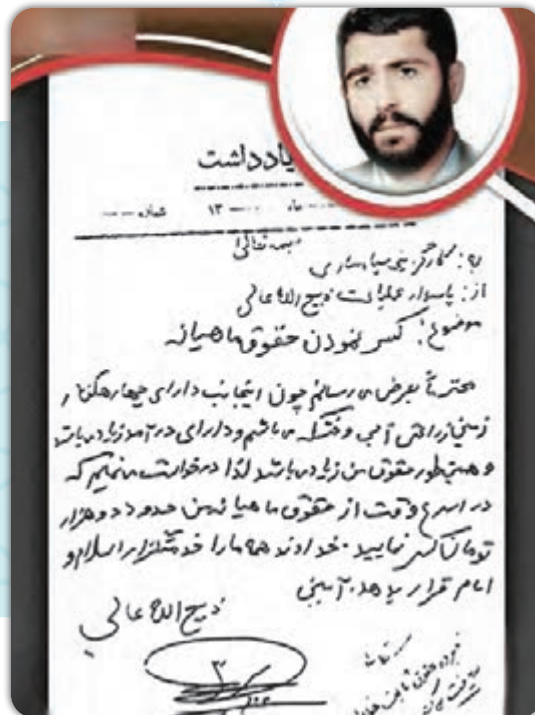 یادداشت
ماه ۱۳ شماره
بسمه تعالی
به: کارگزینی سپاه ساری
از: پاسدار عملیات ذبیح الله عالی
موضوع: کسر نمودن حقوق ماهیانه
محترماً بعرض می رسانم چون اینجانب دارای چهار هکتار
زمین زراعتی آبی و خشکه می باشم و دارای درآمد زیاد می باشد
و همینطور حقوق من زیاد می باشد لذا درخواست می نمایم که
در اسرع وقت از حقوق ماهیانه من حدود دو هزار
تومان کسر نمایید. خداوند همه ما را خدمتگزار اسلام و
امام قرار بدهد. آمین
ذبیح الله عالی